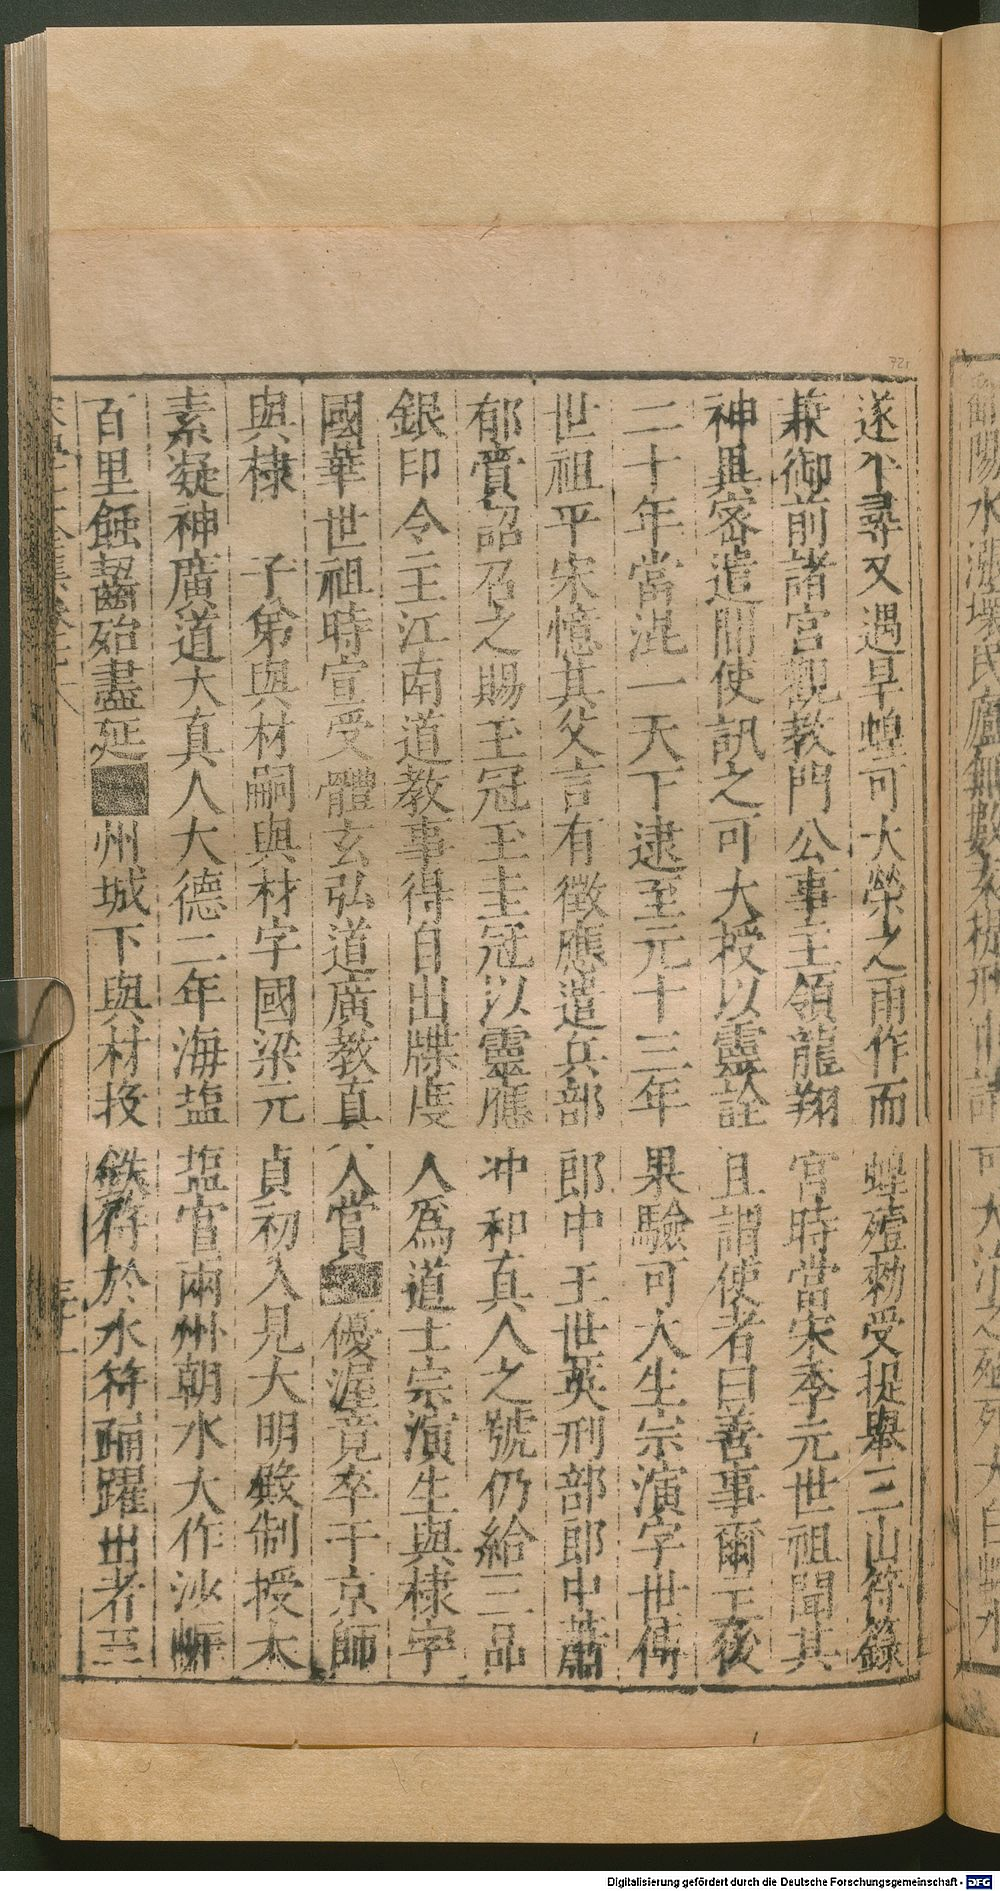 遂平尋又遇旱蝗可大禜之雨作而蝗殪勑受提舉三山符籙
兼御前諸宮觀教門公事主領龍翔宮時當宋季元世祖聞其
神異密遣間使訊之可大授以靈詮且謂使者曰善事爾主後
二十年當混一天下逮至元十三年果驗可大生宗演字世傳
世祖平宋憶其父言有徵應遣兵部郎中王世英刑部郎中蕭
郁賫詔召之賜玉冠玉圭冠以靈應冲和真人之號仍給三品
銀印令主江南道教事得自出牒度人為道士宗演生與棣字
國華世祖時宣受體玄弘道廣教真人賞優渥竟卒于京師
與棣 子弟與材嗣與材字國梁元貞初入見大明殿制授太
素凝神廣道大真人大德二年海塩塩官兩州朝水大作沙
百里蝕齧殆盡延州城下與材投鉄符於水符踊躍出者三
Digitalisierung gefördert durch die Deutsche Forschungsgemeinschaft - DFG